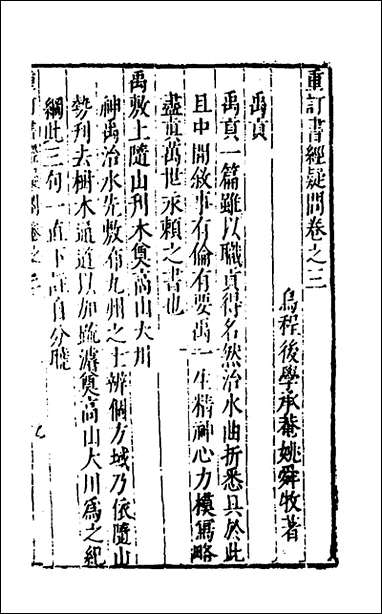 重訂書經疑問卷之三
烏程後學承菴姚舜牧著
禹貢
禹貢一篇雖以職貢得名然治水曲折悉具於此
且中間敘事有倫有要禹一生精神心力模寫略
盡真萬世永賴之書也
禹敷土隨山刊木奠高山大川
神禹治水先敷布九州之土辨個方域乃依隨山
勢刊去樹木通道以加疏濬奠高山大川為之紀
綱此三句一直下語自分曉
重訂書經疑問卷之三